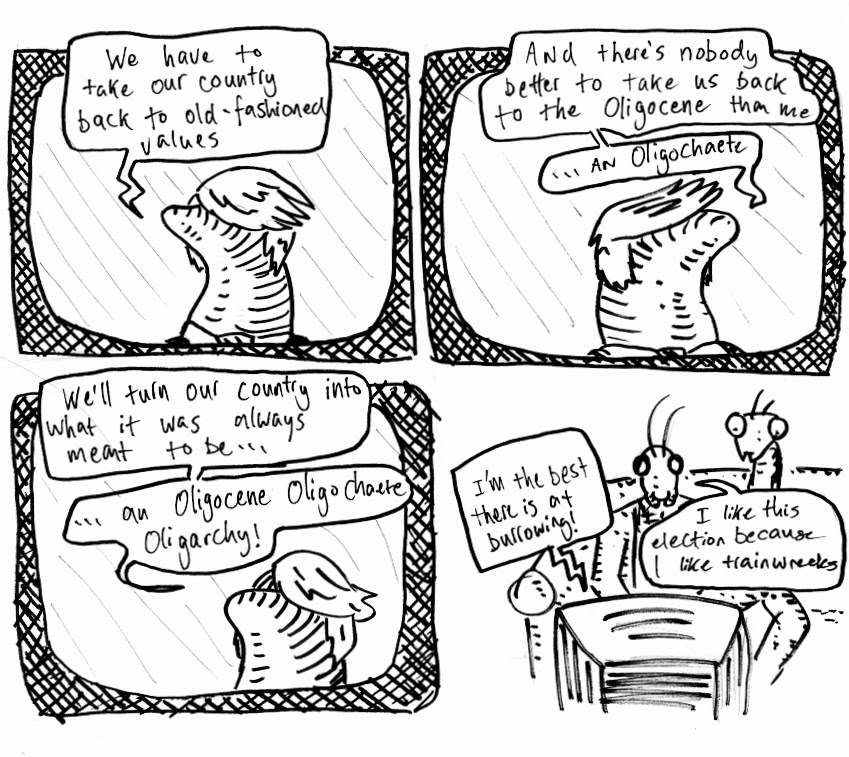 We have to
take our country
back to old-fashioned
values
And there's nobody
better to take us back
to the Oligocene than me
... AN Oligochaete
We'll turn our country into
what it was always
meant to be...
... an Oligocene Oligochaete
Oligarchy!
I'm the best
there is at
burrowing!
I like this
election because
I like trainwrecks